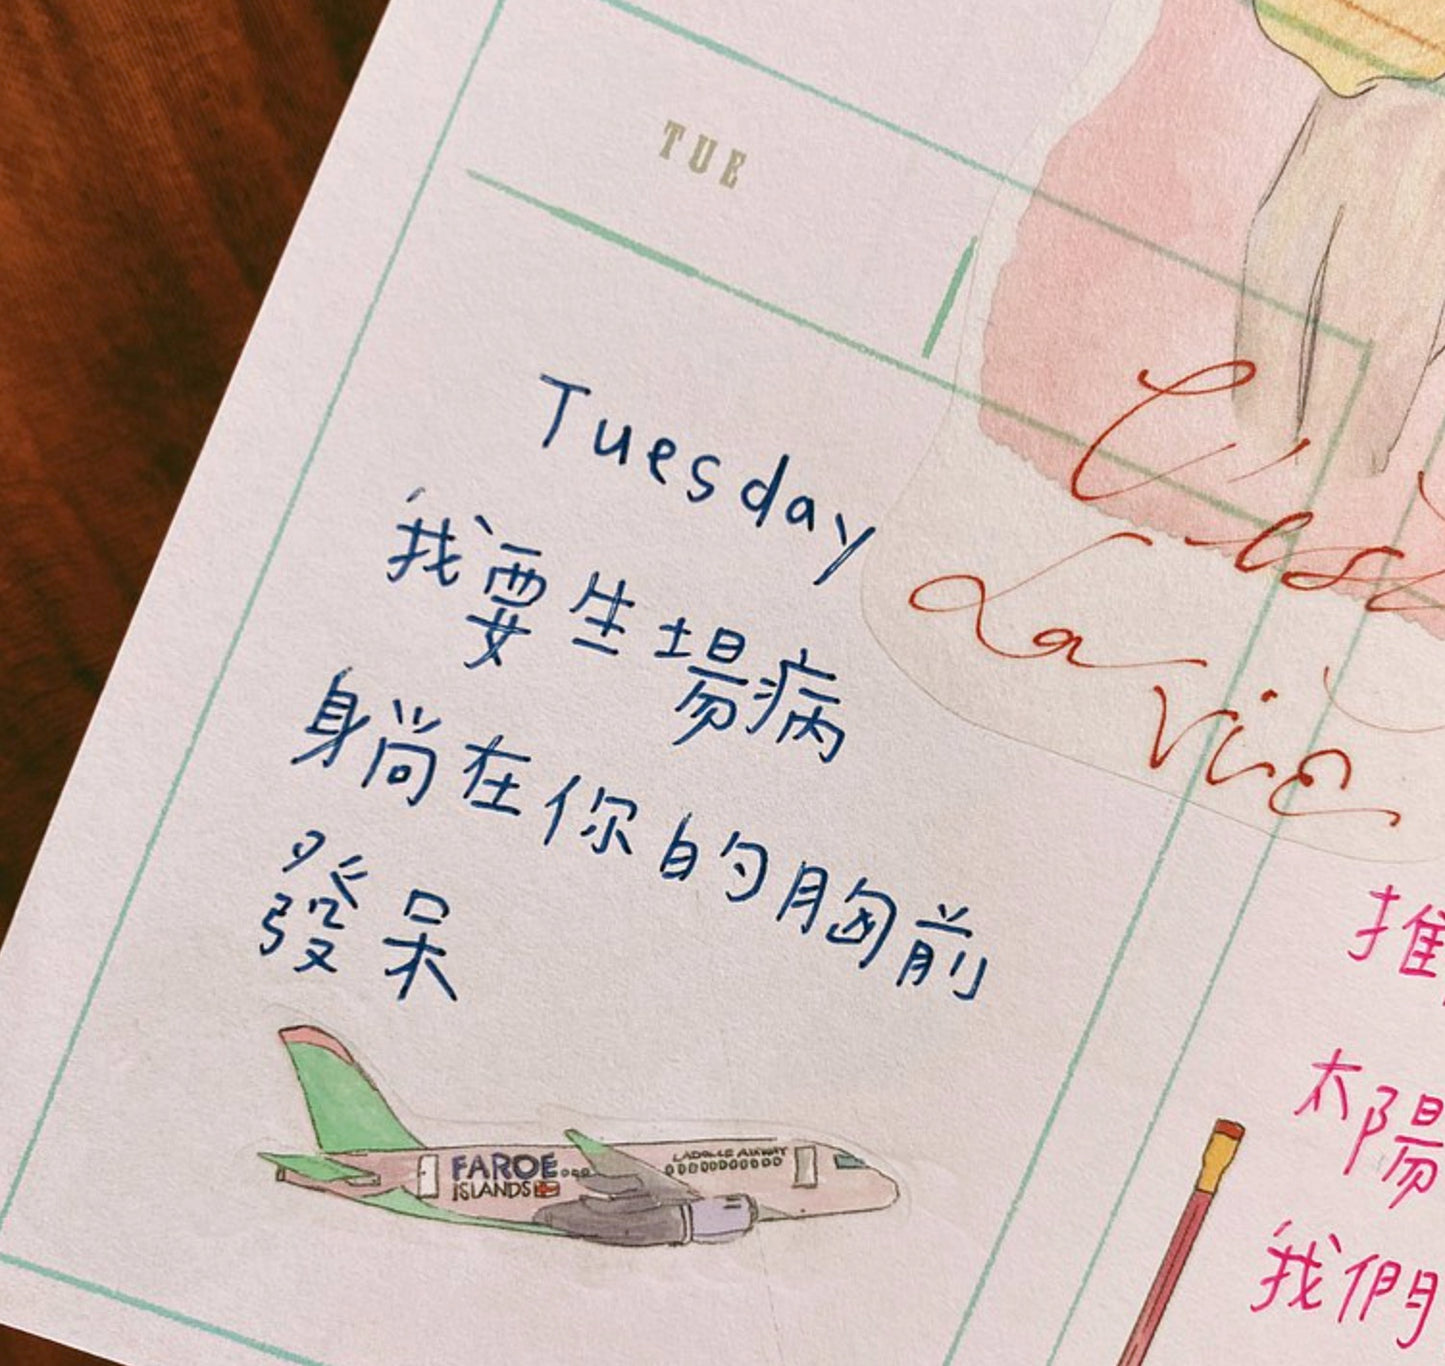 TUE
Tuesday
我要生場病
身尚在你的胸前
發呆
FAROE...
ISLANDS
LADOLLE AIRWAY
C'est
La
vie
推
太陽
我們